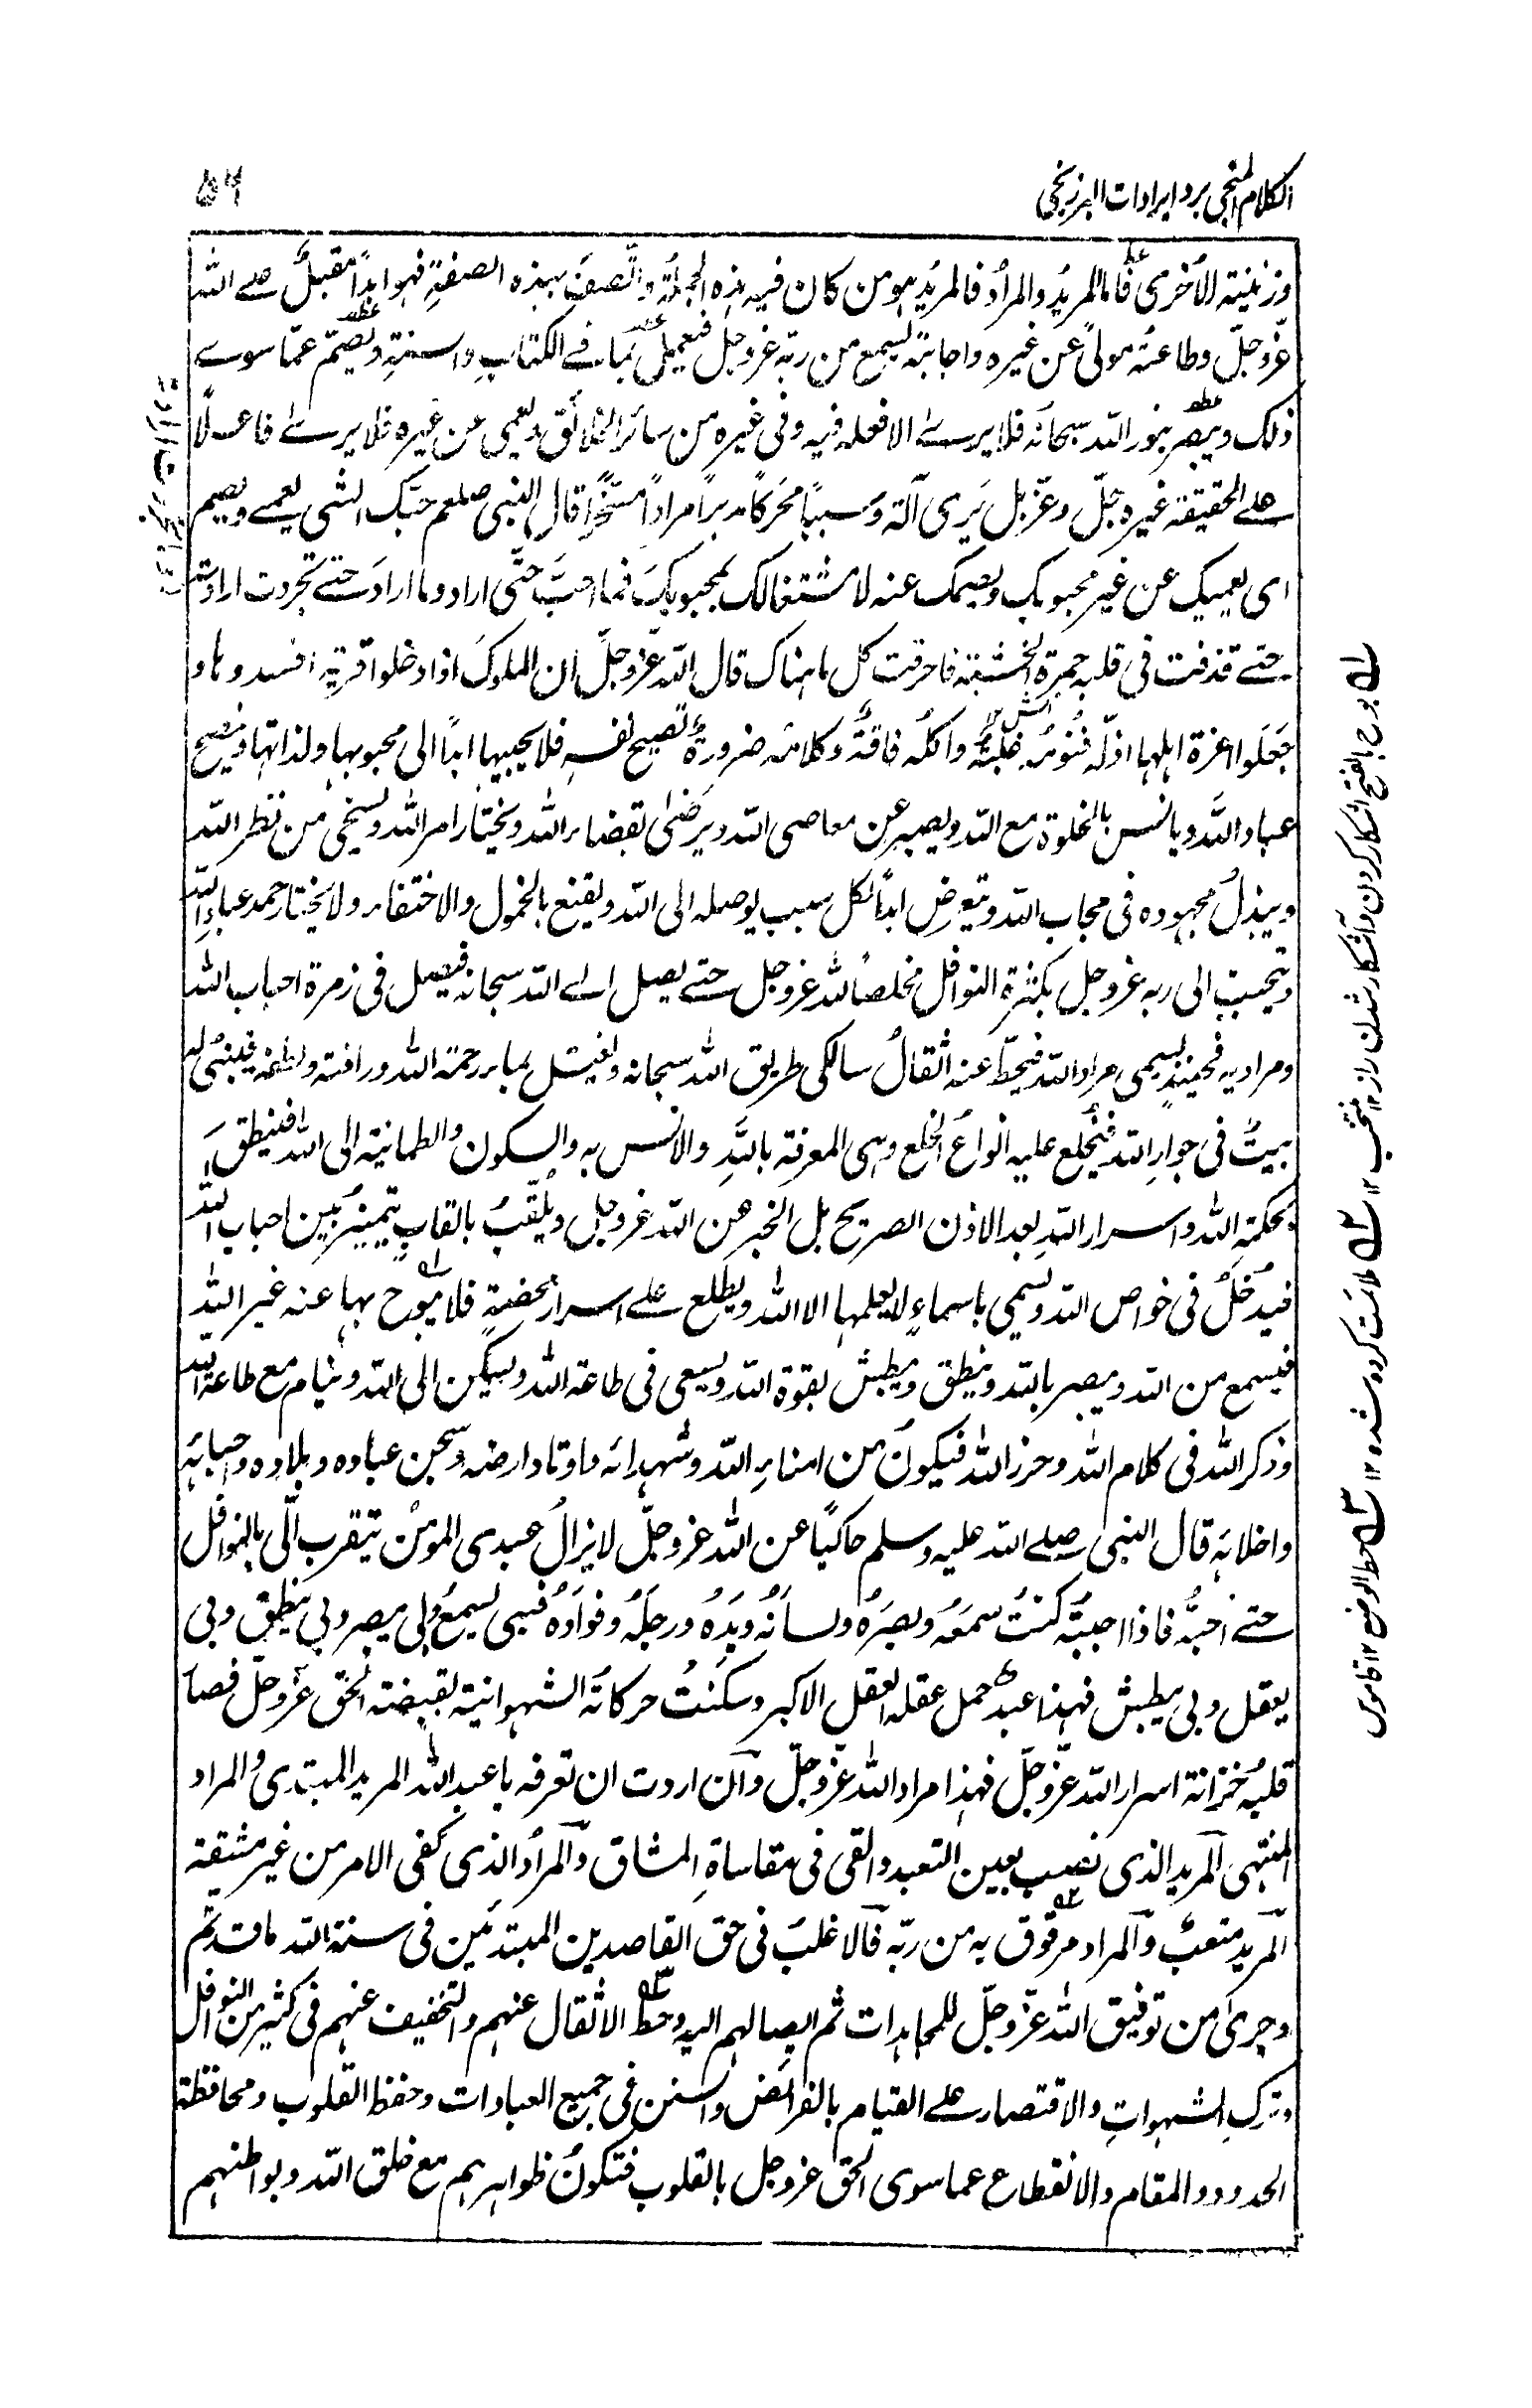 الکلام المنجی برد ایرادات البرزنجی
۵۶
وزنیتہ الاُخری فاما المریدُ والمرادُ فالمریدُ ہو من کان فیہ ہذہ الجملۃُ واتّصف بہذہ الصفۃِ فہو ابداً مقبلٌ علے اللہ
عزّوجلّ وطاعتہ مولیً عن غیرہ واجابتہ یسمع من ربّہ عزوجلّ فیعمل بما فے الکتابِ والسنۃِ ویصمّ عمّا سوے
ذلک ویبصر بنور اللہ سبحانہ فلا یرے الا فعلہ فیہ وفی غیرہ من سائر الخلائق ویعمی عن غیرہ فلا یرے فاعلاً
علے الحقیقۃ غیرہ جلّ وعزّ بل یَری آلۃ وسبباً محرکاً مدبراً مراداً مسخّراً قال النبی صلعم حبّک الشی یعمے ویصم
ای یعمیک عن غیر محبوبک ویصمک عنہ لاشتغالک بمحبوبکَ فما احبَّ حتّی اراد وما ارادَ حتے تجردت ارادتہ
حتے قذفت فی قلبہ جمرۃ الخشیۃ فاحرقت کل ما ہناک قال اللہ عزّوجلّ ان الملوکَ اذا دخلوا قریۃ افسدوہا و
جَعلوا اعزۃ اہلہا اذلّہ فنومہ غلبۃٌ واکلہ فاقۃٌ وکلامہ ضرورۃٌ تصیح نفسہ فلا یجیبہا ابداً الی محبوبہا ولذاتہا وینصح
عباد اللہ ویانس بالخلوۃ مع اللہ ویصبر عن معاصی اللہ ویرضٰی بقضاء اللہ ویختار امر اللہ ویستحی من نظر اللہ
ویبذلُ مجہودہ فی محاب اللہ ویتعرض ابداً لکل سبب یوصلہ الی اللہ ویقنع بالخمول والاختفاء ولا یختار حمد عباد اللہ
ویتحبب الی ربہ عزوجل بکثرۃ النوافل مخلصاً للہ عزوجل حتے یصل الے اللہ سبحانہ فیصل فی زمرۃ احباب اللہ
ومرادیہ فحینئذٍ یسمی مراد اللہ فیحطّ عنہ اثقالُ سالکی طریق اللہ سبحانہ ویغتسل بماء رحمۃ اللہ ورافتہ ولطفہ فیبنٰی لہ
بیتٌ فی جوارِ اللہ فیُخلع علیہ انواعُ الخلع وہی المعرفۃ باللہِ والانس بہ والسکون والطمانیۃ الی اللہ فینطق
بحکمۃِ اللہ واسرار اللہِ بعد الاذن الصریح بل الخبر من اللہ عزوجل ویلقّب بالقابٍ یتمیزُ بین احباب اللہ
فیدخلُ فی خواص اللہ ویسمی باسماءٍ لا یعلمہا الا اللہ ویطلع علے اسرارٍ تخصّہ فلا یبوح بہا عنہ غیر اللہ
فیسمع من اللہ ویبصر باللہ وینطق ویبطش بقوۃ اللہ ویسعی فی طاعۃ اللہ ویسکن الی اللہ وینام مع طاعۃ اللہ
وذکر اللہ فی کلام اللہ وحرز اللہ فیکون من امناءِ اللہ وشہدائہ واوتاد ارضہ وسجن عبادہ وبلادہ واحبائہ
واخلائہٖ قال النبی صلے اللہ علیہ وسلم حاکیًا عن اللہ عزوجلّ لا یزالُ عبدی المومن یتقرب الّی بالنوافل
حتے اُحبّہ فاذا احببتہ کنتُ سمعَہ وبصَرہُ ولسانُہ ویَدَہُ ورجلَہُ وفوادَہُ فبی یسمعُ وبی یبصر وبی ینطق وبی
یعقل وبی یبطش فہذا عبدٌ حمل عقلہ العقل الاکبر وسکنتُ حرکاتہ الشہوانیۃ بقبضۃ الحق عزّوجلّ فصار
قلبہ خزانۃ اسرار اللہ عزّوجلّ فہذا مراد اللہ عزّوجلّ وان اردت ان تعرفہ یا عبد اللہ المرید المبتدی والمراد
المنتہی المرید الذی نصب بعین التعبد والقی فی مقاساۃِ المشاق والمرادُ الذی کفی الامر من غیر مشقۃ
المرید متعبٌ والمراد مرفوق بہ من ربّہ فالاغلب فی حق القاصدین المبتدئین فی سنۃ اللہ ما قد تمّ
وجریٰ من توفیق اللہ عزّوجلّ للمجاہدات ثم ایصالہم الیہ وحط الاثقال عنہم والتخفیف عنہم فی کثیر من النوافل
وترکِ الشہواتِ والاقتصار علے القیام بالفرائض والسنن فی جمیع العبادات وحفظ القلوب ومحافظۃ
الحدود والمقام والانقطاع عما سوی الحق عزوجل بالقلوب فتکونُ ظواہرہم مع خلق اللہ وبواطنہم
لہ بوح بالفتح آشکار کردن وآشکار شدن راز ۱۲ منتخب ۱۲ ۲ہ ملامت کردہ شدہ ۱۲ ۳ہ حط الوضع ۱۲ قاموس